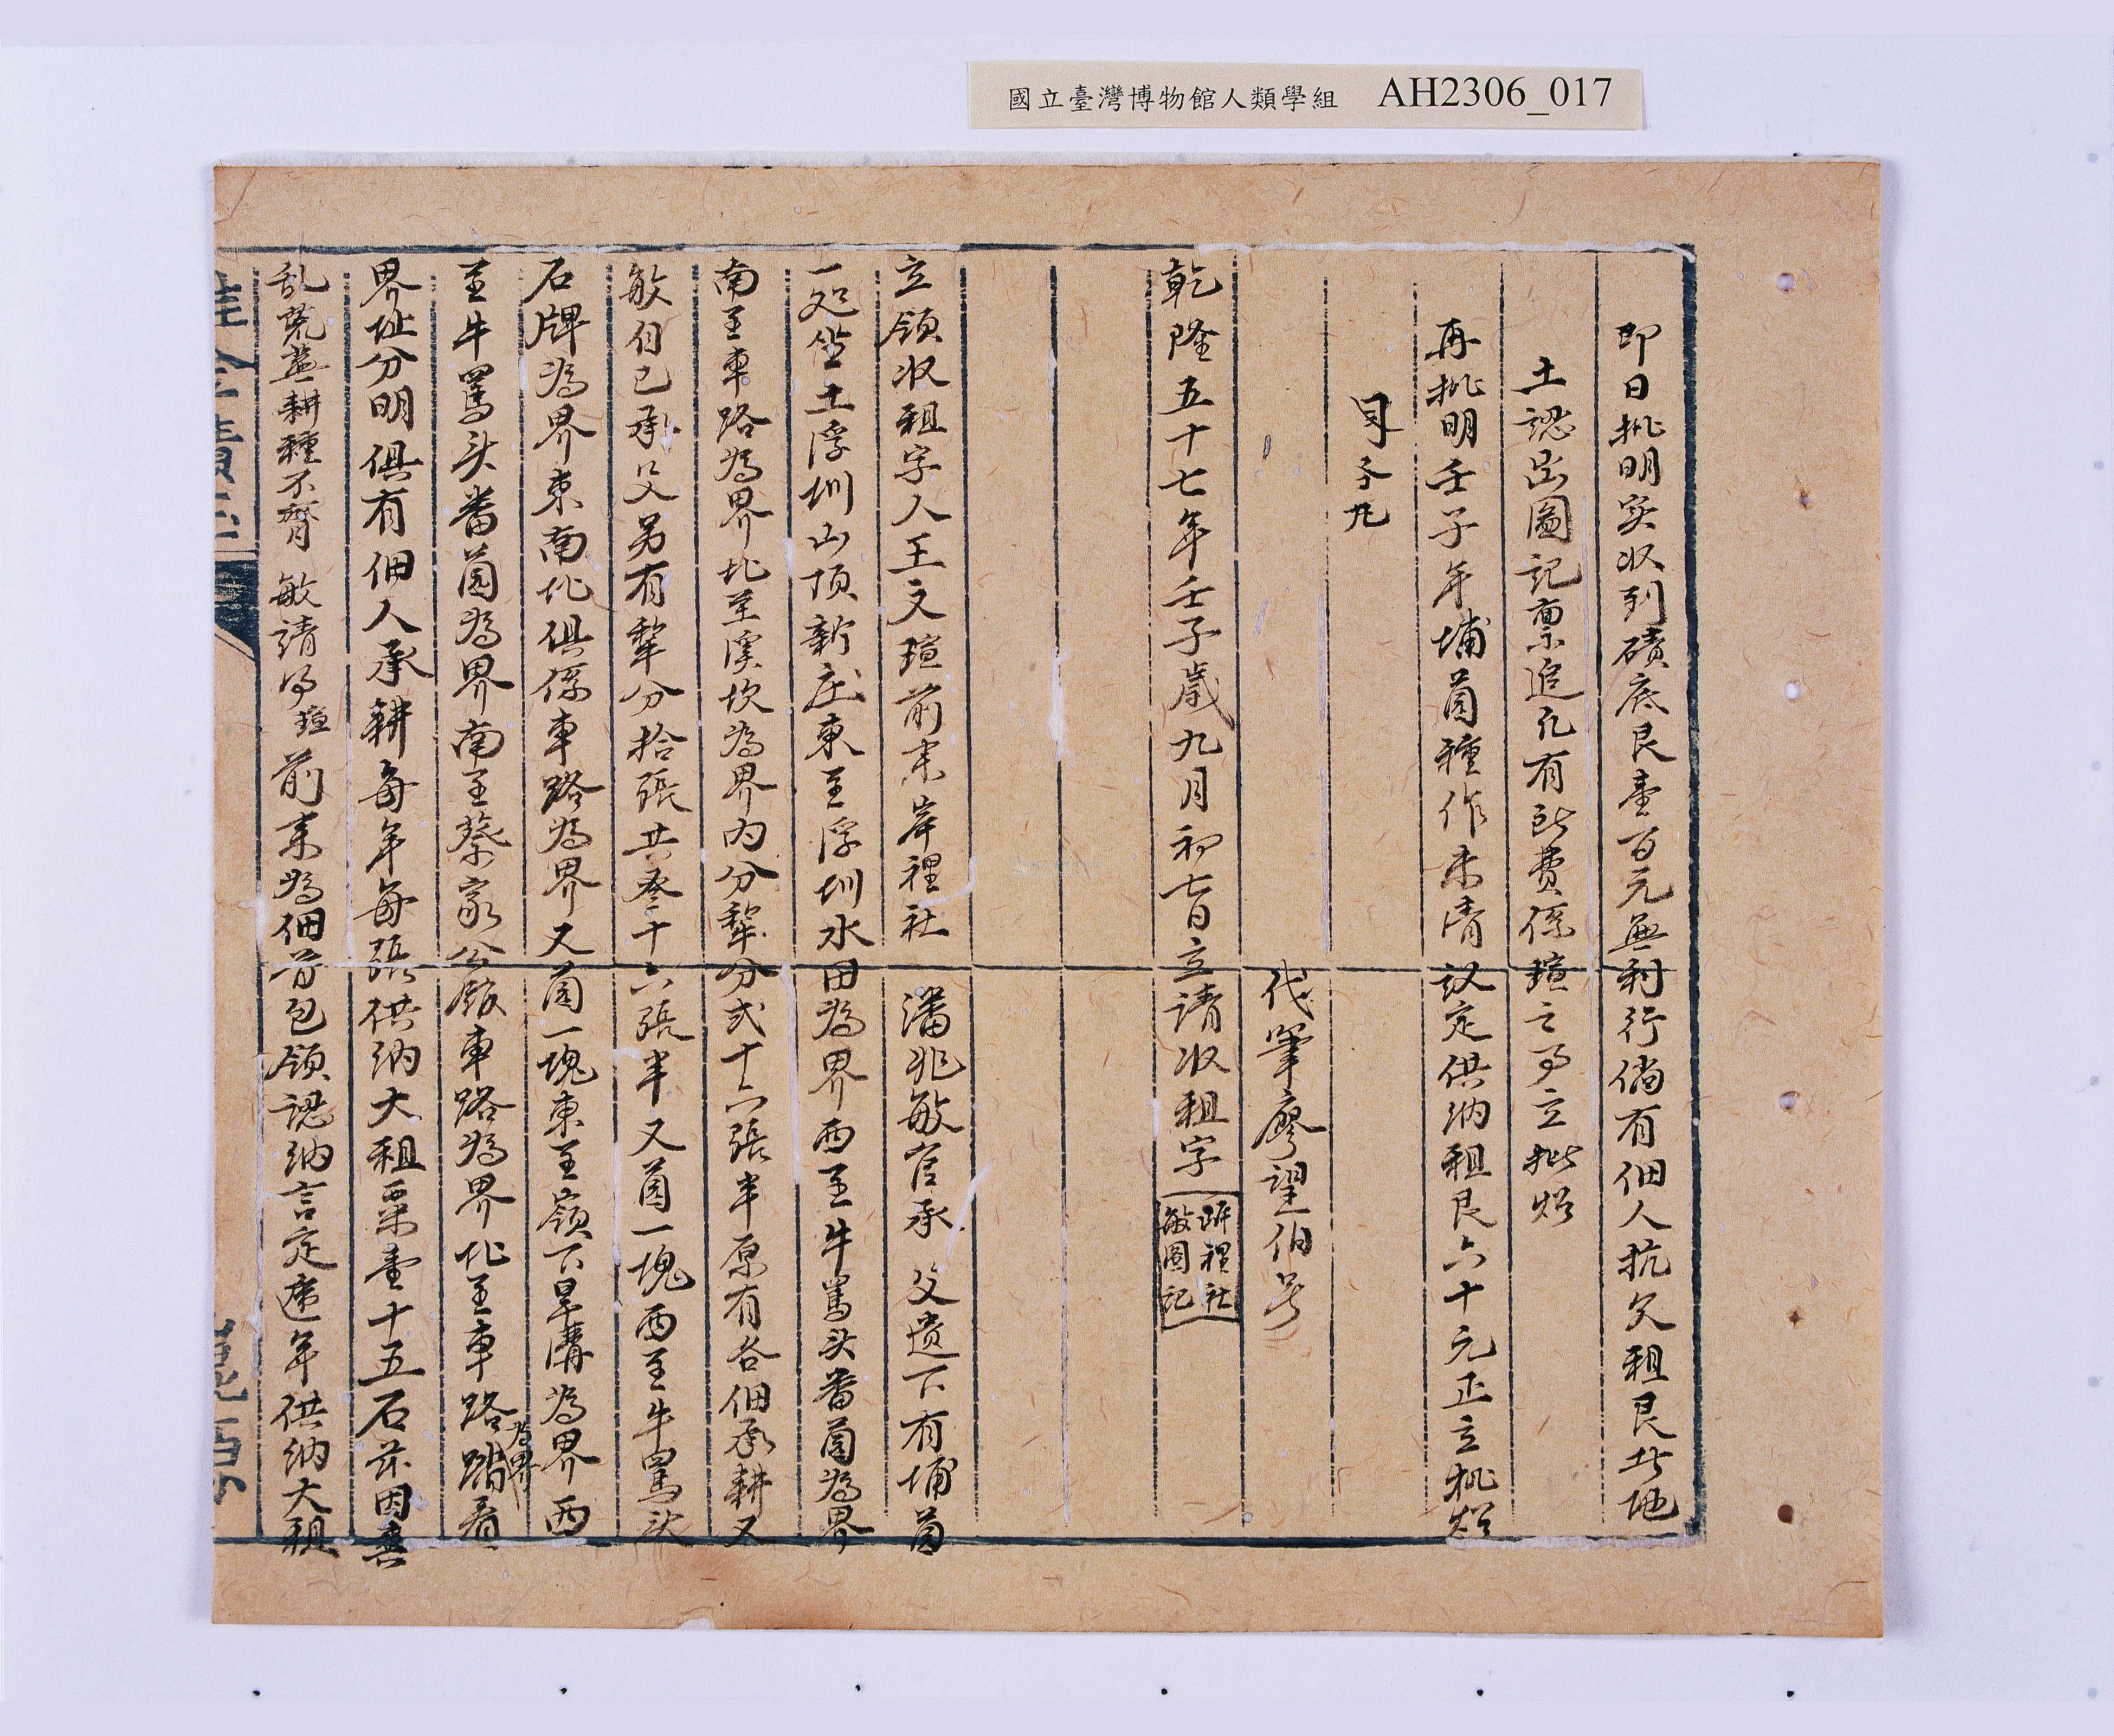 國立臺灣博物館人類學組 AH2306_017
即日批明实收列磧底艮壹百元無利行倘有佃人抗欠租艮此地
土認出圖記禀追凡有所費係瑄之事立批炤
再批明壬子年埔茵種作未清議定供納租艮六十元正立批炤
代筆廖望伯号
乾隆五十七年壬子歲九月初七日立請收租字
岸裡社
敏圖記
立領收租字人王文瑄前来岸裡社 潘兆敏官承 父遗下有埔茵
一処坐土浮圳山頂新庄東至浮圳水田為界西至牛罵头番茵為界
南至車路為界北至溪坎為界内分犂分弍十六張半原有各佃承耕又
敏自己承父另有犂分拾張共叁十六張半又茵一塊西至牛罵头
石牌為界東南北俱係車路為界又茵一塊東至嶺下旱溝為界西
至牛罵头番茵為界南至蔡家公館車路為界北至車路為界踏看
界址分明俱有佃人承耕每年每張供纳大租粟壹十五石茲因喪
乱荒蕪耕種不齊 敏請得瑄前来為佃首包領認纳言定遞年供纳大租